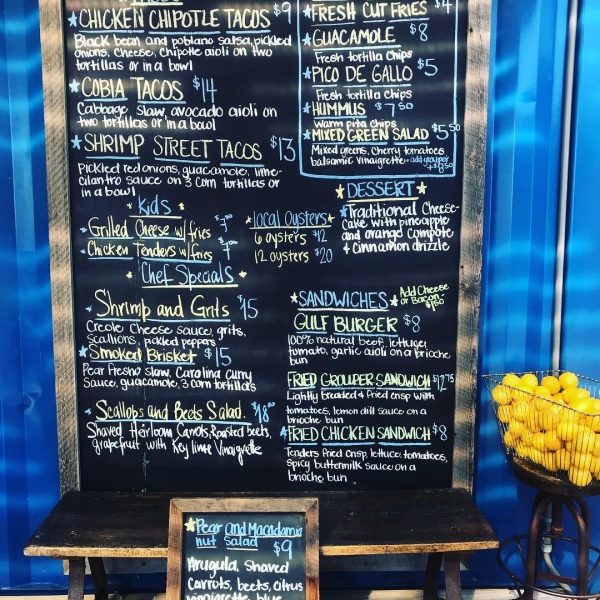 CHICKEN CHIPOTLE TACOS $9
Black bean and poblano salsa, pickled
onions, cheese, Chipotle aioli on two
tortillas or in a bowl
COBIA TACOS $14
Cabbage slaw, avocado aioli on
two tortillas or in a bowl
SHRIMP STREET TACOS $13
Pickled red onions, guacamole, lime-
cilantro sauce on 3 corn tortillas or
in a bowl
Kids
Grilled Cheese w/ fries
Chicken Tenders w/ fries
Chef Specials
Shrimp and Grits $15
Creole Cheese sauce, grits,
scallions, pickled peppers
Smoked Brisket $15
Pear fresno slaw, Carolina curry
sauce, guacamole, 3 corn tortillas
Scallops and Beets Salad
Shaved Heirloom Carrots, Roasted beets,
grapefruit with Key lime Vinaigrette
local oysters
6 oysters $12
12 oysters $20
FRESH CUT FRIES $4
GUACAMOLE $8
Fresh tortilla chips
PICO DE GALLO $5
Fresh tortilla chips
HUMMUS $7.50
warm pita chips
MIXED GREEN SALAD $5.50
Mixed greens, cherry tomatoes
balsamic vinaigrette add grouper
DESSERT
Traditional Cheese-
cake with pineapple
and orange compote
+ Cinnamon drizzle
SANDWICHES
Add Cheese
or Bacon
$1.50
GULF BURGER $8
100% natural beef, lettuce,
tomato, garlic aioli on a brioche
bun
FRIED GROUPER SANDWICH $12.75
Lightly breaded + fried crisp with
tomatoes, lemon dill sauce on a
brioche bun
FRIED CHICKEN SANDWICH $8
Tenders fried crisp, lettuce, tomatoes,
spicy buttermilk sauce on a
brioche bun
Pear and Macadamia
nut Salad $9
Arugula, Shaved
Carrots, beets, Citrus
vinaigrette, blue